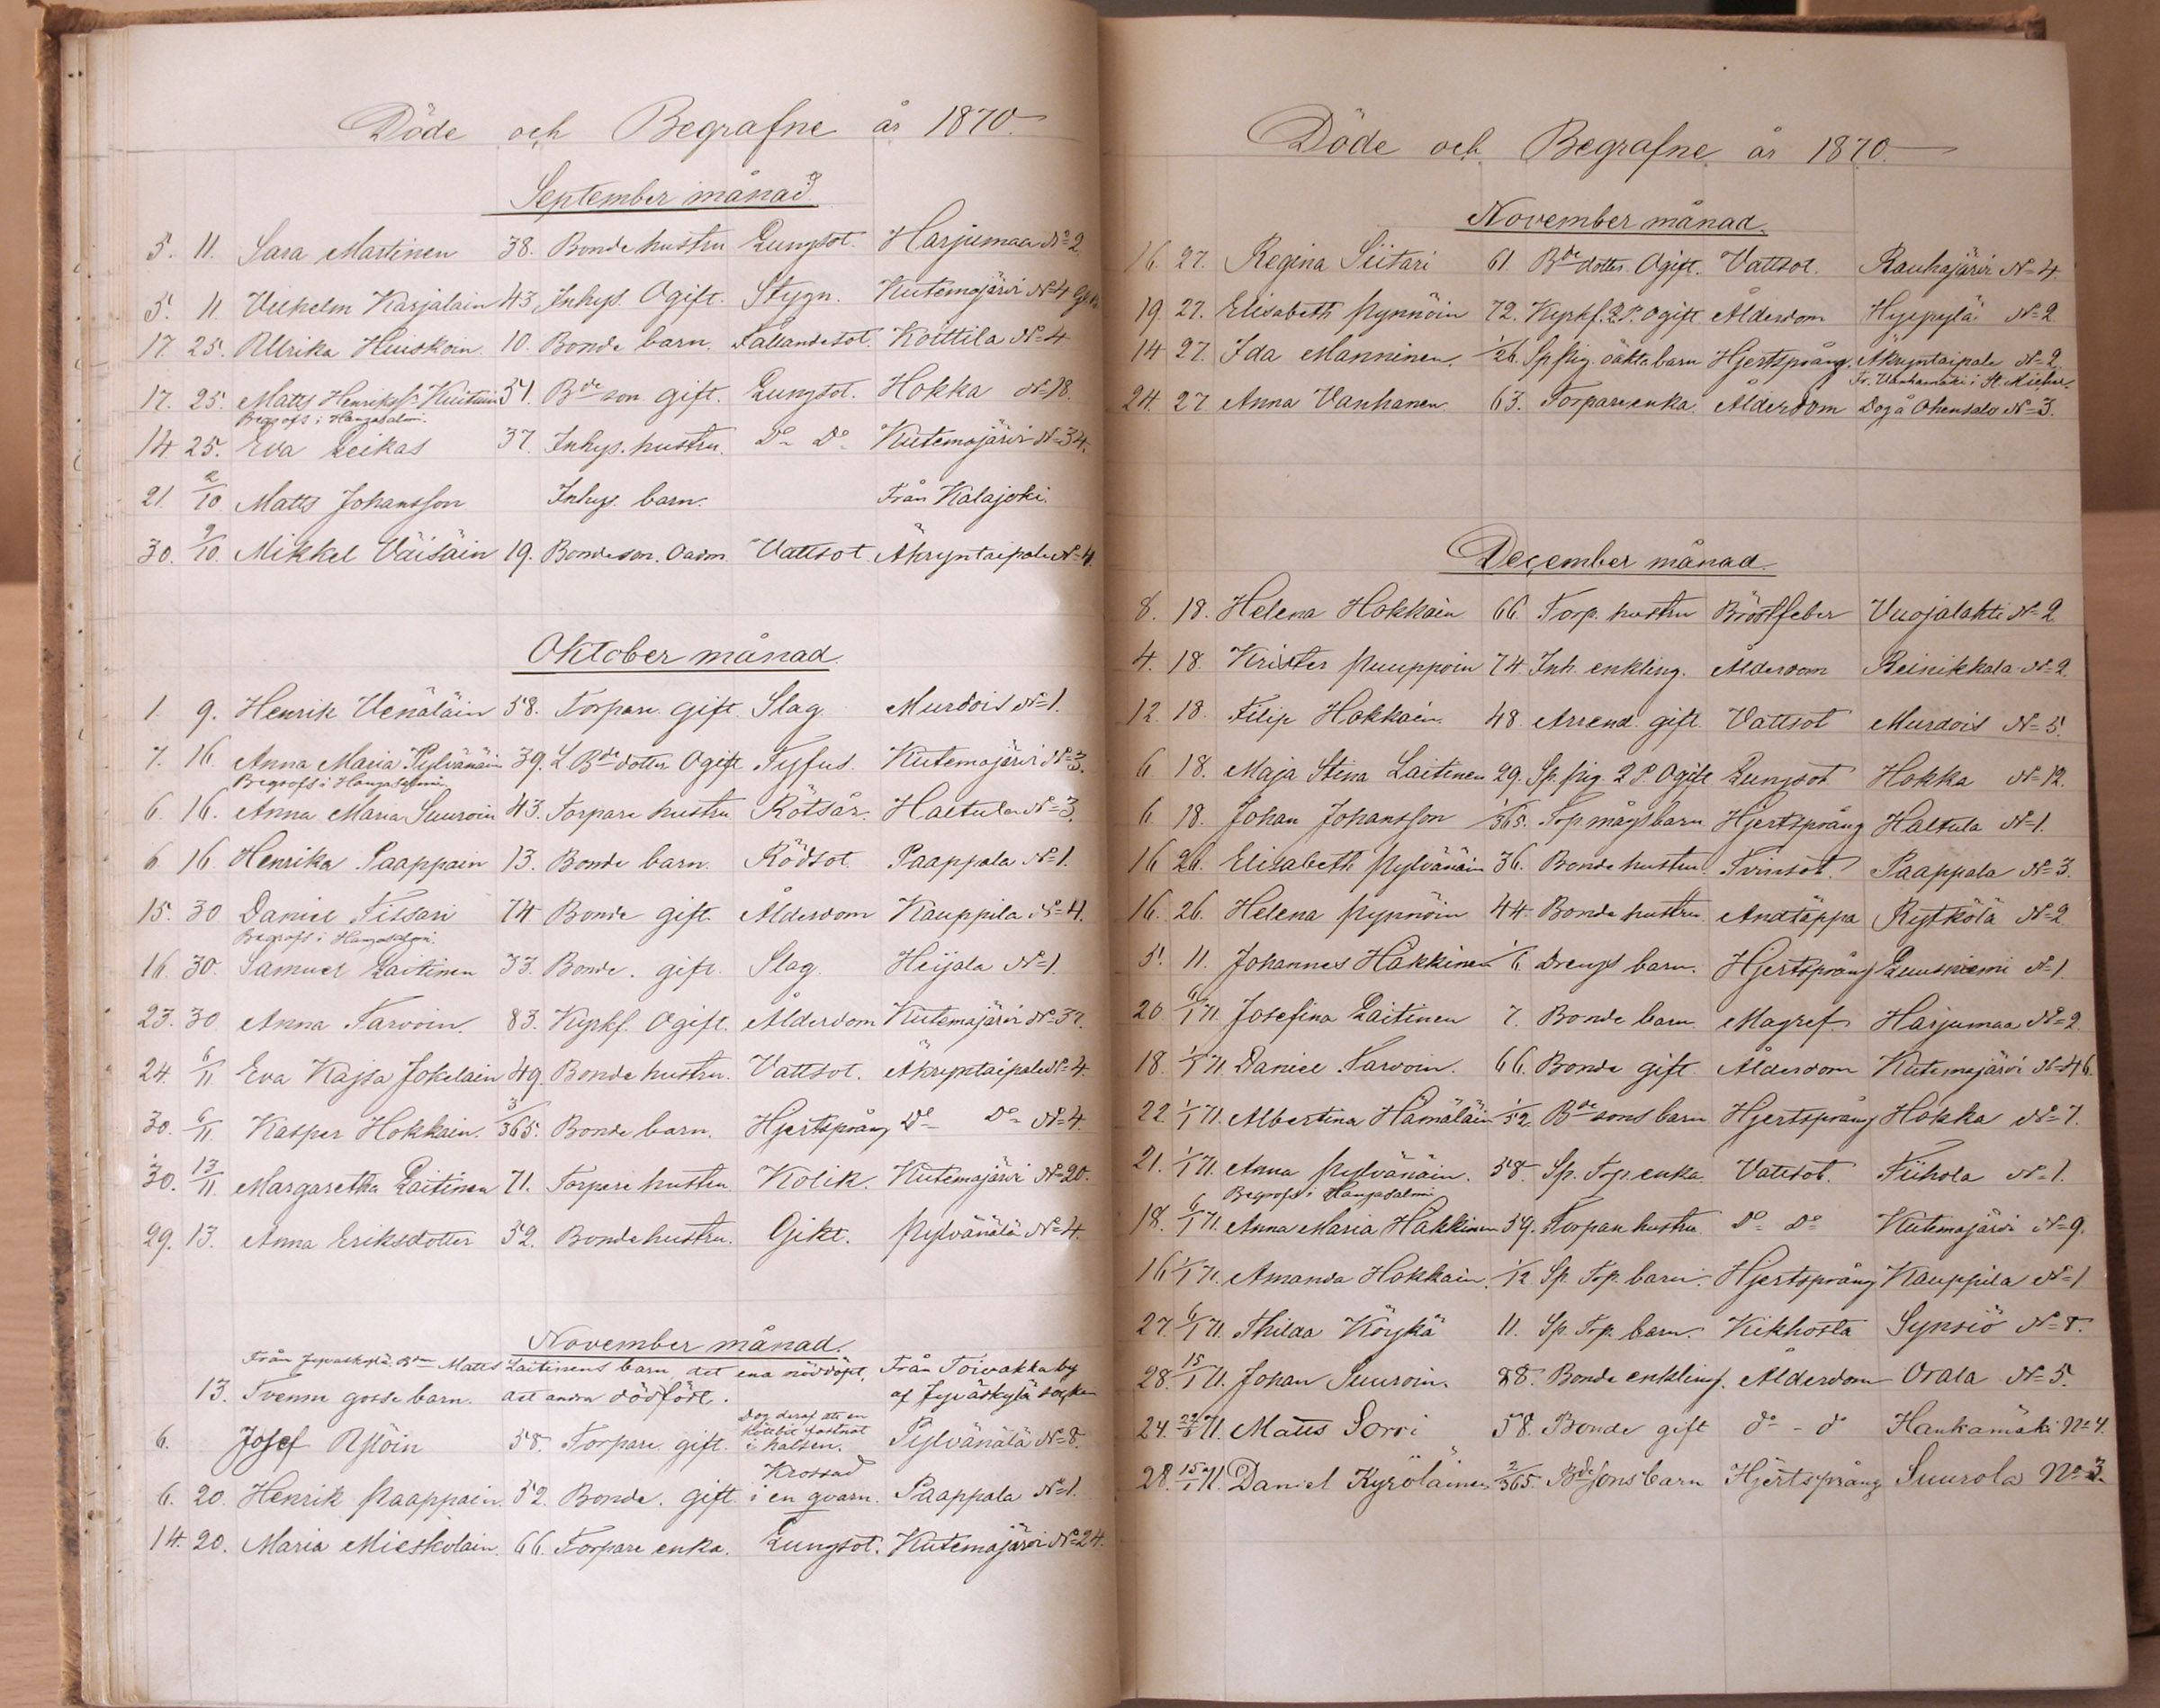 Döde och Begrafne år 1870.
September månad
5. 11. Sara Martinen 38. Bonde hustru Lungsot. Harjumaa No 2
5. 11. Vilhelm Karjalain 43 Inhys. Ogift. Stygn. Kutemajärvi No 4
17. 25. Ullrika Huiskoin 10. Bonde barn. Fallandesot. Koittila No 4
17. 25. Matts Henriks. Kuitain 51. Bde son gift. Lungsot. Hokka No 18.
Begrofs i Hangasalmi.
14. 25. Eva Leikas 37. Inhys. hustru. Do Do Kutemajärvi No 34.
21. 2/10 Matts Johansson Inhys. barn. Från Kalajoki.
30. 9/10. Mikkel Väisäin 19. Bondeson. Oadm. Vattsot Äkryntaipale No 4.
Oktober månad.
1. 9. Henrik Venäläin 58. Torpare gift Slag Murdois No 1.
7. 16. Anna Maria Pylvänäin 39. L. Bde dotter Ogift Tyfus. Kutemajärvi No 3.
Begrofs i Hangasalmi.
6. 16. Anna Maria Suuroin 43. Torpare hustru Rötsår. Haltula No 3.
6 16 Henrika Paappain 13. Bonde barn. Rödsot. Paappala No 1.
15. 30 Daniel Tissari 74 Bonde gift. Ålderdom Kauppila No 4.
Begrofs i Hangasalmi.
16. 30. Samuel Laitinen 33. Bonde. gift. Slag. Heijala No 1.
23. 30 Anna Tarvoin. 83. Kyrkf. Ogift. Ålderdom Kutemajärvi No 37.
24. 6/11 Eva Kajsa Jokelain 49 Bonde hustru. Vattsot. Äkryntaipale No 4.
30. 6/11 Kasper Hokkain. 3/365. Bonde barn. Hjertsprång Do Do No 4.
30. 13/11. Margaretha Laitinen 71. Torpare hustru Kolik. Kutemajärvi No 20.
29. 13. Anna Eriksdotter 52. Bonde hustru. Gikt. Pylvänälä No 4.
November månad.
Från Jyväskylä Bdn Matts Laitinens barn, det ena nöddöpt, Från Toivakka by
13. Tvenne gosse barn. det andra dödfödt. af Jyväskylä socken
Dog deraf att en
köttbit fastnat
6. Josef 58. Torpare gift. i halsen. Pylvänälä No 8.
Krossad
6. 20. Henrik Paappain. 52. Bonde. gift i en qvarn. Paappala No 1.
14. 20. Maria Mieskolain. 66. Torpare enka. Lungsot. Kutemajärvi No 24.
Döde och Begrafne år 1870.
November månad.
16. 27. Regina Siitari 61. Bde dotter. Ogift. Vattsot. Rauhajärvi No 4.
19. 27. Elisabeth Pynnöin 72. Kyrkf. 2. P. Ogift Ålderdom Hyypylä No 2
14 27. Ida Manninen. 1/26. Sp. pig. oäkta barn Hjertsprång. Äkryntaipale No 2.
Fr. Vanhamäki i St. Michel.
24. 27 Anna Vanhanen 63. Torpareenka. Ålderdom Dog å Ohensalo No 3.
December månad.
8. 18. Helena Hokkain 66. Torp. hustru Bröstfeber Vuojalahti No 2.
4. 18. Krister Puuppoin 74. Inh. enkling. Ålderdom Reinikkala No 2.
12. 18. Filip Hokkain. 48. Arrend. gift. Vattsot Murdois No 5.
6 18. Maja Stina Laitinen 29. Sp. pig. 2. P. Ogift Lungsot Hokka No 12.
6 18. Johan Johansson 1/365. Torp mågs barn. Hjertsprång Haltula No 1.
16 26. Elisabeth Pylvänäin 36. Bonde hustru Tvinsot. Paappala No 3.
16. 26. Helena Pynnöin 44 Bonde hustru Andtäppa Rytkölä No 2
5. 11. Johannes Häkkinen 1/6. Drengs barn. Hjertsprång Luusniemi No 1.
20 6/1 71. Josefina Laitinen 7. Bonde barn. Magref. Harjumaa No 2.
18. 1/1 71 Daniel Tarvoin. 66. Bonde gift. Ålderdom Kutemajärvi No 46.
22. 1/1 71. Albertina Hämäläin 1/52. Bde sons barn Hjertsprång Hokka No 7.
21. 1/1 71. Anna Pylvänäin. 58. Sp. Torp. enka. Vattsot. Tiihola No 1.
Begrofs i Hangasalmi
18. 6/1 71. Anna Maria Häkkinen 59. Torpare hustru. Do Do Kutemajärvi No 9.
16 1/1 71. Amanda Hokkain. 1/12 Sp. Torp. barn. Hjertsprång Kauppila No 1
27. 6/1 71. Thilda Köykä 11. Sp. Torp. barn. Kikhosta Synsiö No 8.
28. 15/1 71. Johan Suuroin. 88. Bonde enkling. Ålderdom Orala No 5.
24. 29/1 71. Matts Sorri 58. Bonde gift do - do Hankamäki No 4.
28. 15/1 71. Daniel Kyröläinen 2/365. Bde sons barn Hjertsprång Suurola No 3.